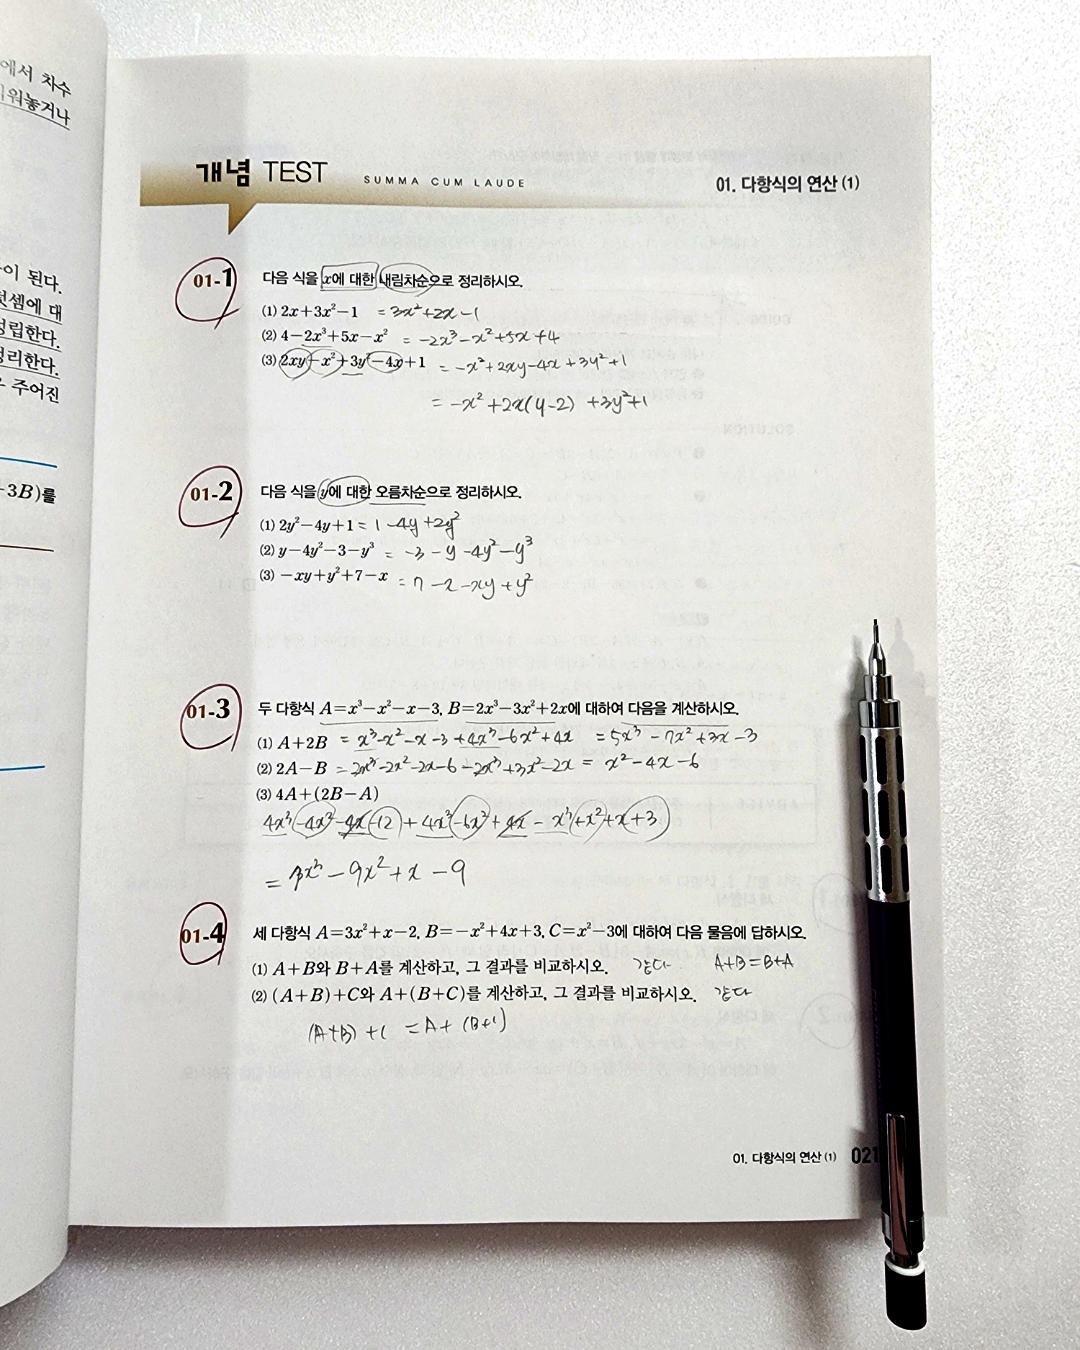 에서 차수
워놓거나
이 된다.
덧셈에 대
성립한다.
정리한다.
주어진
3B)를
개념 TEST SUMMA CUM LAUDE 01. 다항식의 연산 (1)
01-1 다음 식을 x에 대한 내림차순으로 정리하시오.
(1) 2x+3x²-1 = 3x²+2x-1
(2) 4-2x³+5x-x² = -2x³-x²+5x+4
(3) 2xy-x²+3y²-4x+1 = -x²+2xy-4x+3y²+1
= -x²+2x(y-2) +3y²+1
01-2 다음 식을 y에 대한 오름차순으로 정리하시오.
(1) 2y²-4y+1 = 1-4y+2y²
(2) y-4y²-3-y³ = -3-y-4y²-y³
(3) -xy+y²+7-x = 7-x-xy+y²
01-3 두 다항식 A=x³-x²-x-3, B=2x³-3x²+2x에 대하여 다음을 계산하시오.
(1) A+2B = x³-x²-x-3+4x³-6x²+4x = 5x³-7x²+3x-3
(2) 2A-B = 2x³-2x²-2x-6-2x³+3x²-2x = x²-4x-6
(3) 4A+(2B-A)
4x³-4x²-4x-12+4x³-6x²+4x-x³+x²+x+3
= x³-9x²+x-9
01-4 세 다항식 A=3x²+x-2, B=-x²+4x+3, C=x²-3에 대하여 다음 물음에 답하시오.
(1) A+B와 B+A를 계산하고, 그 결과를 비교하시오. 같다. A+B=B+A
(2) (A+B)+C와 A+(B+C)를 계산하고, 그 결과를 비교하시오. 같다
(A+B)+C = A+(B+C)
01. 다항식의 연산 (1) 021